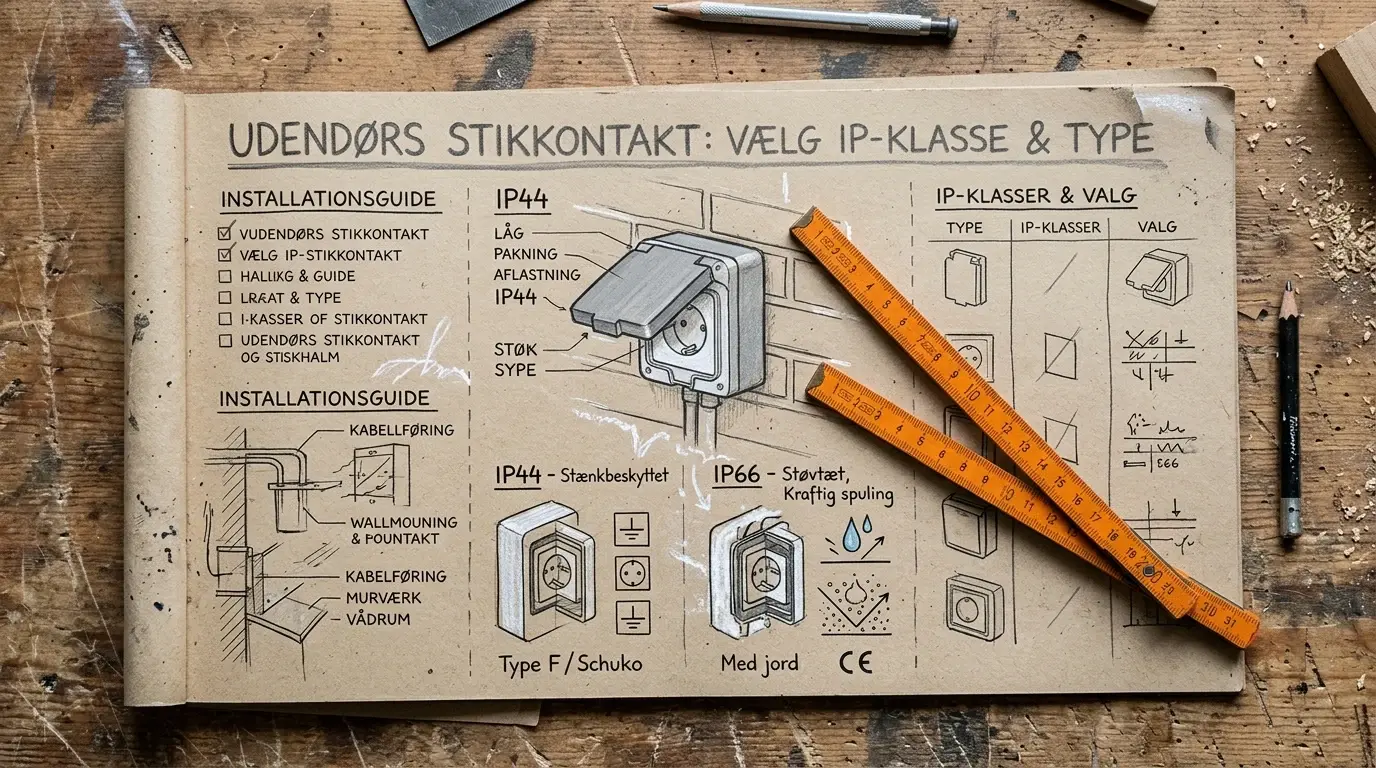 UDENDØRS STIKKONTAKT: VÆLG IP-KLASSE & TYPE
INSTALLATIONSGUIDE
VUDENDØRS STIKKONTAKT
VÆLG IP-STIKKONTAKT
& GUIDE
& TYPE
I-KASSER OF STIKKONTAKT
UDENDØRS STIKKONTAKT
OG STISKHALM
INSTALLATIONSGUIDE
KABELLFØRING
WALLMOUNING
& POUNTAKT
KABELFØRING
MURVÆRK
VÅDRUM
IP44
LÅG
PAKNING
AFLASTNING
IP44
STØK
SYPE
IP44 - Stænkbeskyttet
Type F / Schuko
IP66 - Støvtæt,
Kraftig spuling
Med jord
CE
IP-KLASSER & VALG
TYPE IP-KLASSER VALG